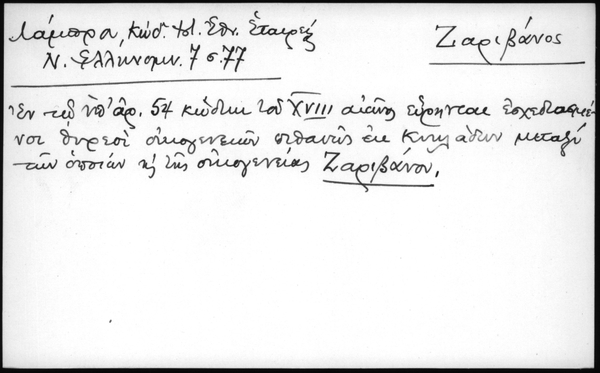 Λάμπρα, Κώδ. Ἱστ. Ἐθν. Ἑταιρεί
Ν. Ἑλληνομν. 7 σ. 77
Ζαριβάνος
Ἐν τῷ ὑπ' ἀρ. 54 κώδικι τοῦ XVIII αἰῶνος εὕρηνται ἐσχεδιασμέ-
νοι θυρεοὶ οἰκογενειῶν πιθανῶς ἐκ Κυκλάδων μεταξὺ
τῶν ὁποίων κ' τῆς οἰκογενείας Ζαριβάνου.